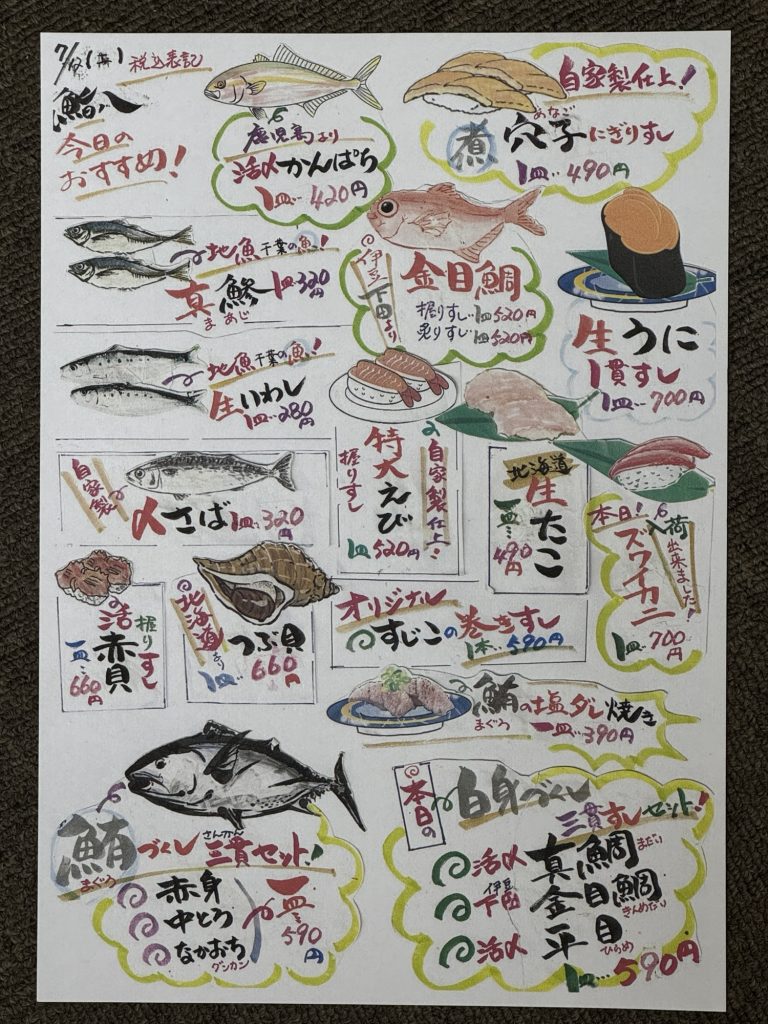 税込表記
鮨八
今日の
おすすめ!
鹿児島より
活〆かんぱち
1皿…420円
自家製仕上!
あなご
煮穴子にぎりずし
1皿…490円
地魚千葉の魚!
真鯵 1皿320円
まあじ
伊豆下田より
金目鯛
握りずし…1皿520円
炙りずし…1皿520円
生うに
1貫ずし
1皿…700円
地魚千葉の魚!
生いわし
1皿…280円
自家製
〆さば 1皿…320円
自家製仕上!
特大えび
握りずし
1皿520円
北海道
生たこ
一皿…490円
本日!入荷出来ました!
ズワイカニ
1皿…700円
握りずし
活赤貝
一皿…660円
北海道より
つぶ貝
1皿…660円
オリジナル
すじこの巻きずし
1本…590円
鮪の塩ダレ焼き
まぐろ
一皿…390円
さんかん
鮪づくし三貫セット!
まぐろ
赤身
中とろ
なかおち
グンカン
一皿…590円
本日の
白身づくし
三貫ずしセット!
活〆 真鯛 まだい
伊豆
下田 金目鯛 きんめだい
活〆 平目 ひらめ
1皿…590円